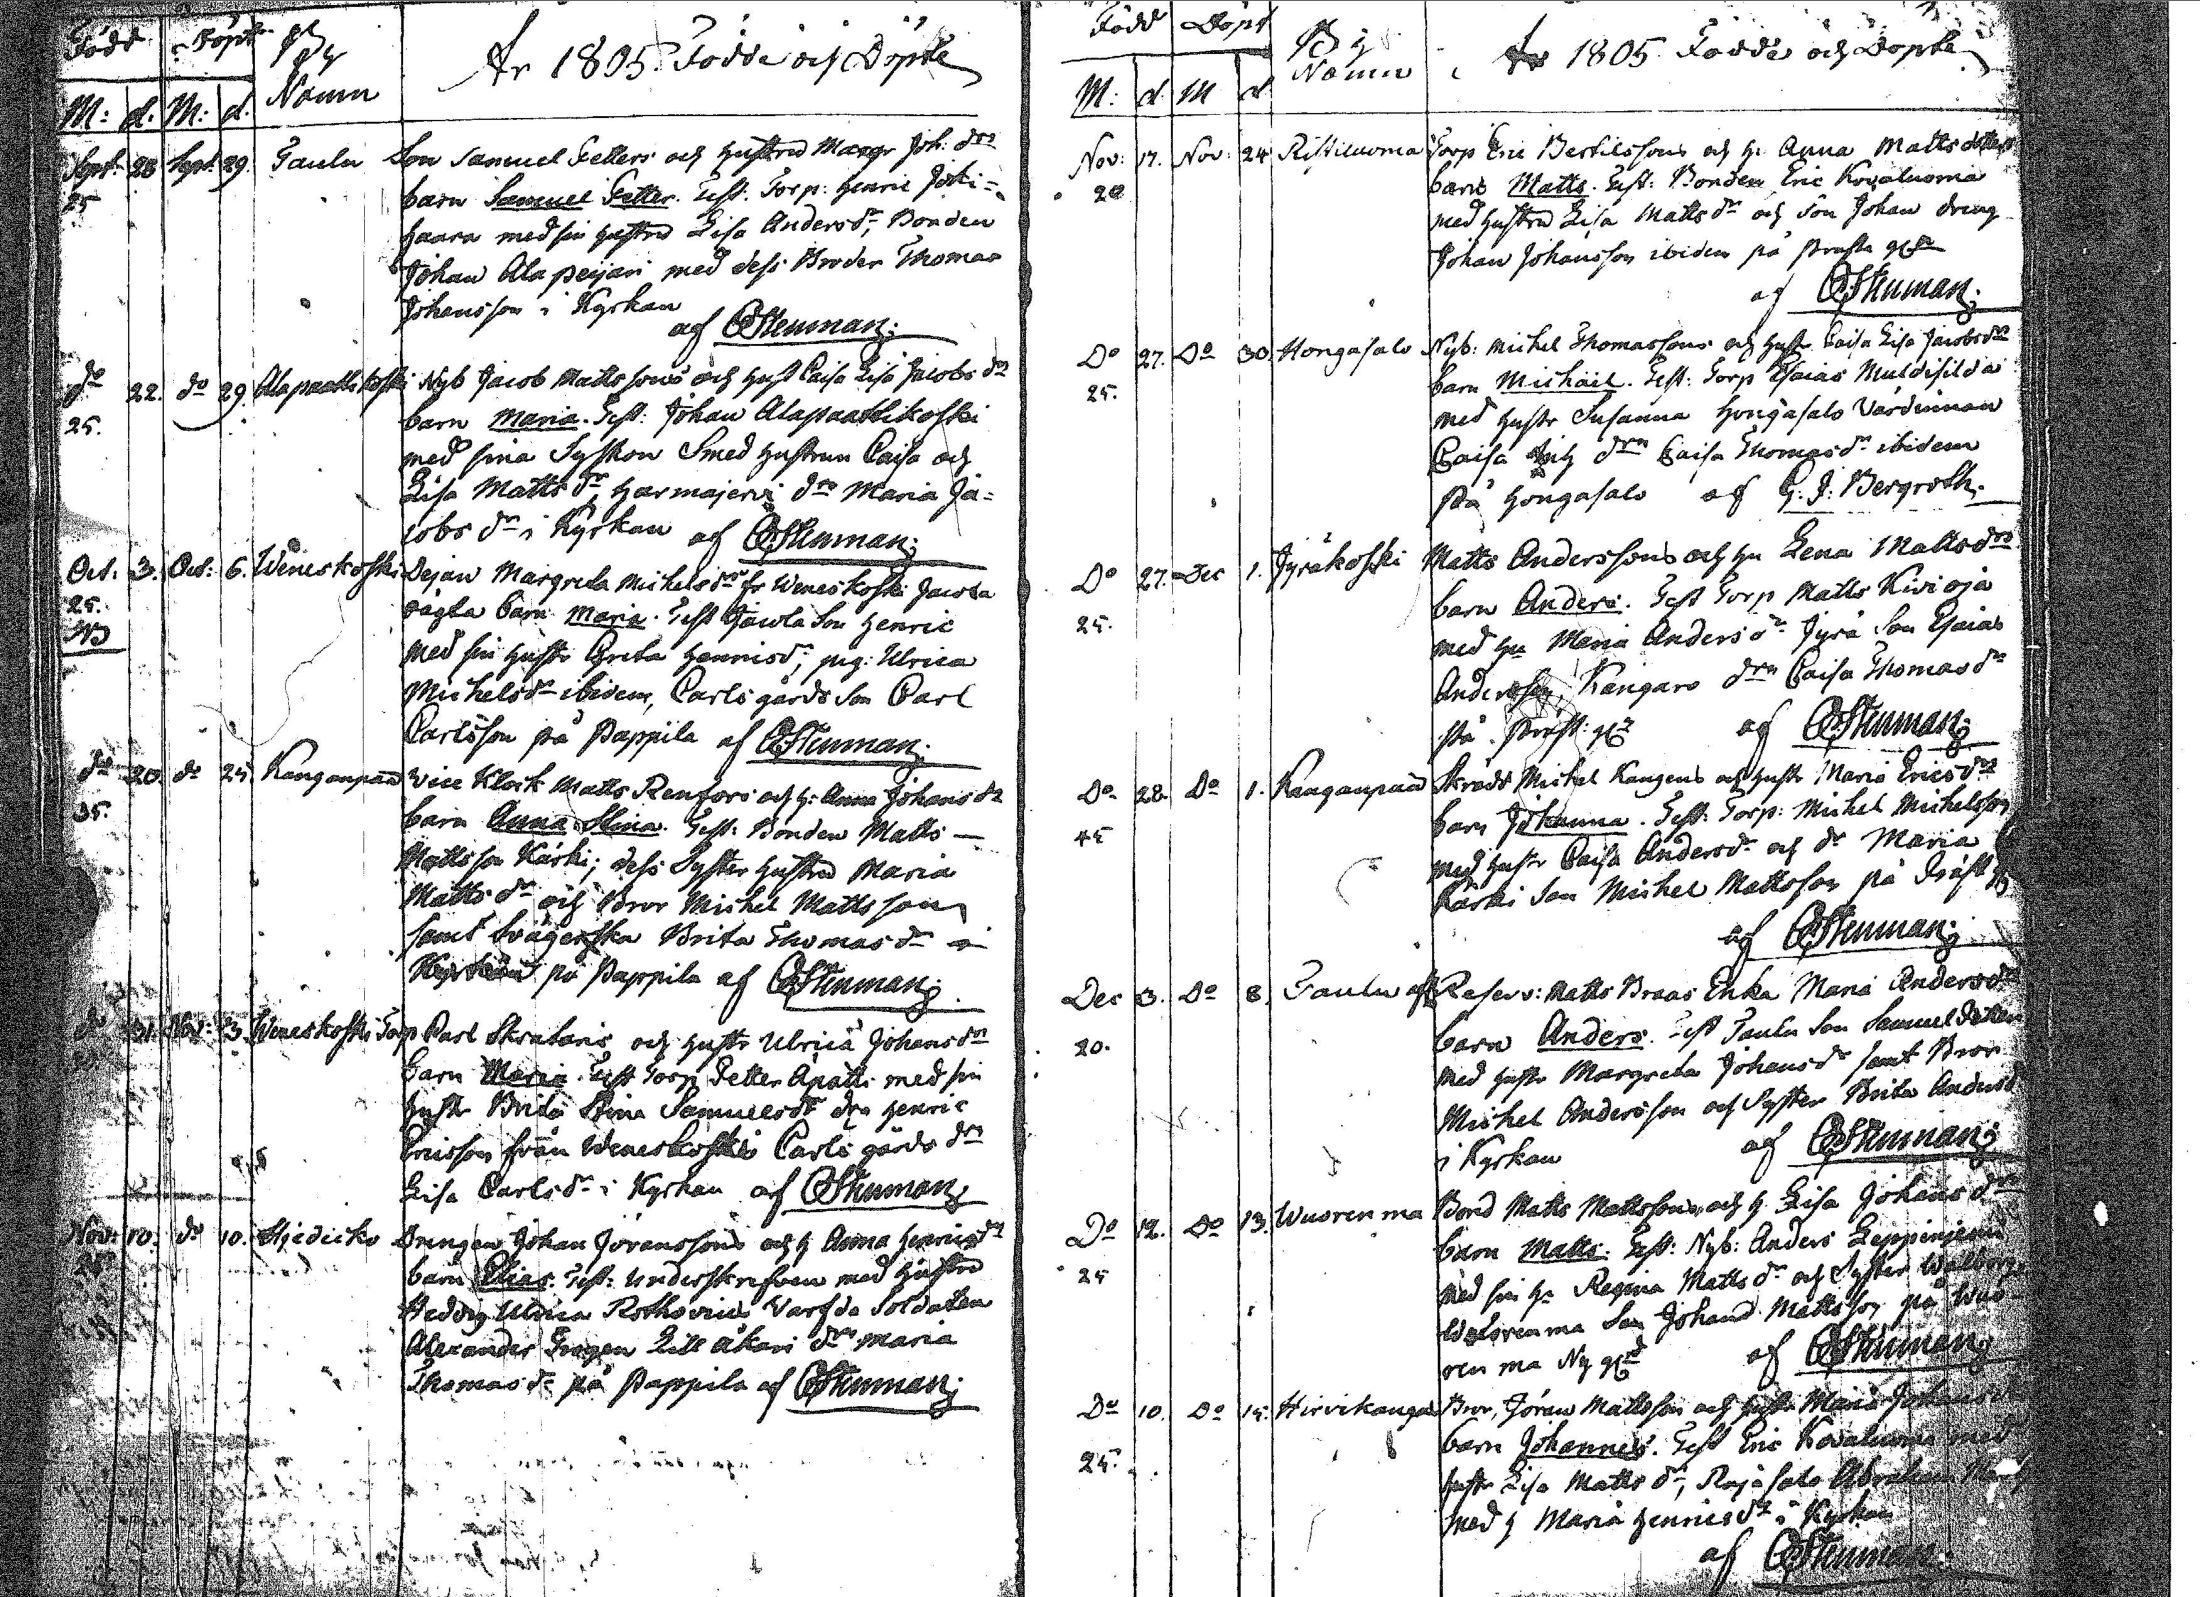 Född Döpt By Namn År 1805 Födde och Döpte
M: d. M: d.
Sept: 28 Sept: 29. Paulu Son Samuel Petters och hustrus Margr Joh: drs
25 barn Samuel Petter. Test. Torp: Henric Joki=
haara med sin hustru Lisa Andersdr, Bonden
Johan Alapeijari med dess Broder Thomas
Johansson i Kyrkan
af CStenman:
do 22. do 29 Alapaattikoski Nyb Jacob Mattssons och hust Caisa Lisa Jacobs drs
25. barn Maria. Test: Johan Alapaattikoski
med sina Syskon Smed hustrun Caisa och
Lisa Matts dr, Harmajervi drn Maria Ja=
cobs dr i Kyrkan af CStenman:
Oct: 3. Oct: 6. Weneskoski Dejan Margreta Michelsdrs fr Weneskoski Jaerla
25. oägta barn Maria. Test Son Henric
NB med sin hustr Greta Henricsdr, pig: Ulrica
Michelsdr ibidem, Carls gårds Son Carl
Carlsson på Pappila af CStenman:
do 20. do 24 Kanganpää Vice Klock Matts Renfors och h: Anna Johans drs
35. barn Anna Stina. Test: Bonden Matts
Mattsson Kärki, dess Syster hustru Maria
Matts dr och Bror Michel Mattsson
samt Svägerska Brita Thomas dr
på Pappila af CStenman:
do 31. Nov: 3. Weneskoski Torp Carl Skrataris och hustr Ulrica Johans drs
barn Maria. Test Torp Petter Apatti med sin
hustr Brita Stina Samuelsdr drn Henric
Ericsson från Weneskoski Carls gårds drn
Lisa Carlsdr i Kyrkan af CStenman:
Nov: 10. do 10. Hjedicko Drengen Johan Joranssons och h Anna Henricsdrs
25 barn Elias. Test: Underskrefven med hustru
Hedvig Ulrica Rothovius Varfda Soldaten
Alexander Trogen Lill akari drn Maria
Thomas dr på Pappila af CStenman:
Född Döpt By Namn År 1805 Födde och Döpte
M: d. M d
Nov: 17. Nov: 24 Ristiluoma Torp Eric Bertilssons och h: Anna Mattsdotters
20 barn Matts. Test: Bonden Eric Kovaluoma
med hustru Lisa Matts dr och Son Johan dreng
Johan Johansson ibidem på Prosta
af CStenman:
Do 27. Do 30. Hongasalo Nyb: Michel Thomassons och hustr Caisa Lisa Jacobsdrs
25. barn Michaël. Test: Torp Esaias Muldisilda
med hustr Susanna Hongasalo Värdinnan
Caisa och drn Caisa Thomasdr ibidem
På Hongasalo af G: J: Bergroth.
Do 27. Dec 1. Jyräkoski Matts Anderssons och hu Lena Mattsdrs
25. barn Anders. Test Torp Matts Kivioja
med hu Maria Andersdr Jyrä Son Esaias
Andersson, Kangaro drn Caisa Thomas dr
På Prost: af CStenman:
Do 28. Do 1. Kanganpää Skrädd Michel Kangens och hustr Maria Ericsdrs
45 barn Johanna. Test: Torp: Michel Michelsson
med hustr Caisa Andersdr och dr Maria
Kärki Son Michel Mattsson på Pråst
af CStenman:
Dec 3. Do 8. Paulu Reserv: Matts Braas Enka Maria Andersdrs
20. barn Anders. Test Paulu Son Samuel Petter
med hustr Margreta Johansdr samt Bror
Michel Andersson och Syster Brita Andersdr
i Kyrkan af CStenman:
Do 12. Do 13. Wuorenma Bond Matts Mattssons och h Lisa Johans drs
25 barn Matts. Test: Nyb: Anders Leppinjemi
med sin hu Regina Matts dr och Syster Walborg,
Wuorenma Son Johan Mattsson på Wuo
ren ma Ny af CStenman:
Do 10. Do 15. Hirvikangas Bror, Jöran Mattsson och hustr Maria Johansdr
25. barn Johannes. Test Eric Kovaluoma med
hustr Lisa Matts dr, Rajasalo Abraham
med h Maria Henricsdr i Kyrkan
af CStenman: